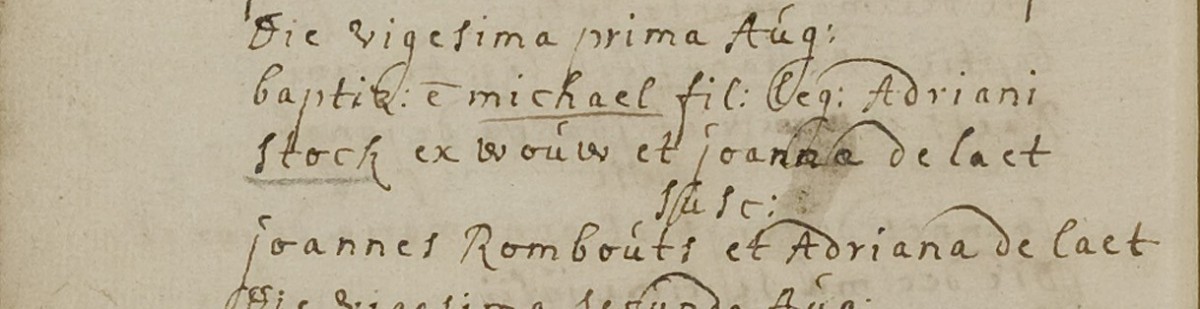 Die vigesima prima Aúg:
baptiz: ē michael fil: Leg: Adriani
stock ex woúw et joanna de laet
súsc:
joannes Romboúts et Adriana de laet
Die vigesima secunda Aúg: